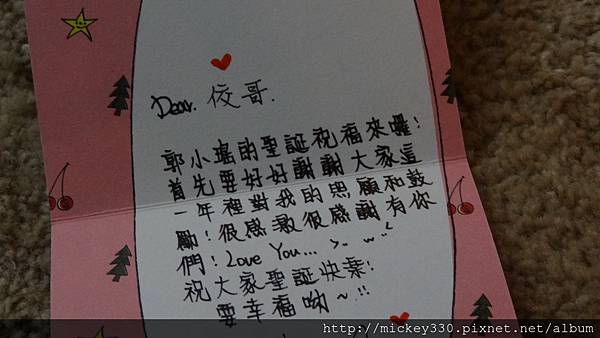 Dear. 佼哥.
郭小瑶的聖誕祝福來囉!
首先要好好謝謝大家這
一年裡對我的照顧和鼓
勵!很感激很感謝有你
們! Love You... >.. w ..<
祝大家聖誕快樂!
要幸福呦~!!
http://mickey330.pixnet.net/album